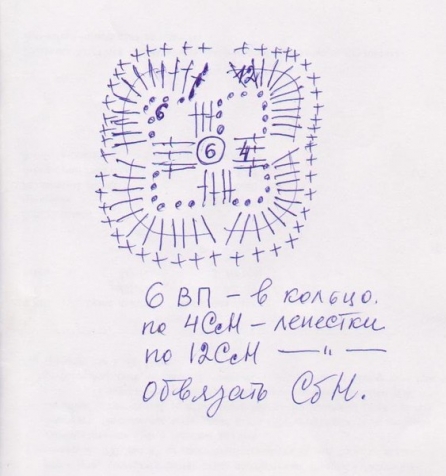 12
6
6
4
6 ВП – в кольцо.
по 4СсН – лепестки
по 12СсН — " —
Обвязать СбН.